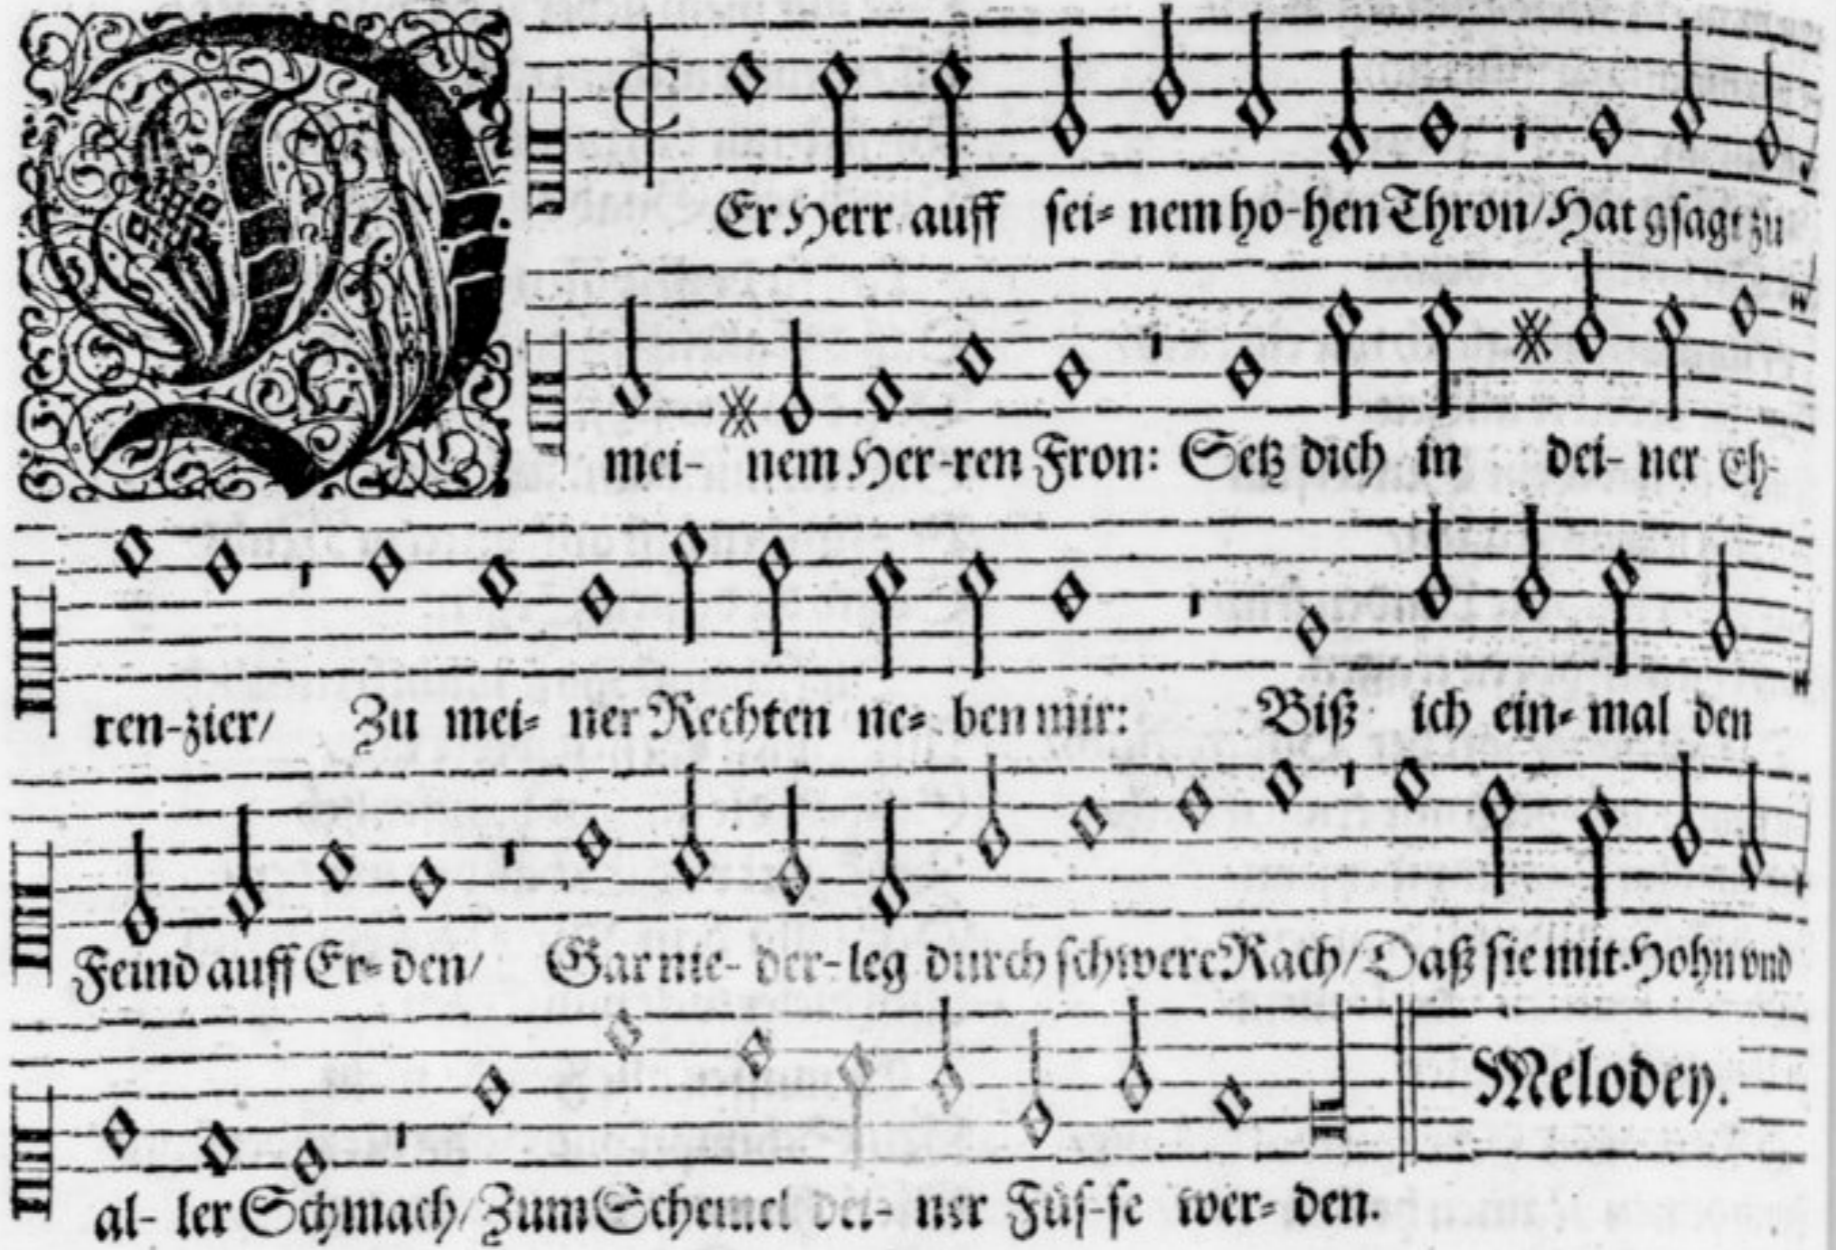 DEr Herr auff sei- nem ho-hen Thron/Hat gsagt zu
mei- nem Her-ren Fron: Setz dich in dei- ner Eh-
ren-zier/ Zu mei- ner Rechten ne- ben mir: Biß ich ein- mal den
Feind auff Er- den/ Gar nie- der-leg durch schwere Rach/Daß sie mit Hohn vnd
al- ler Schmach/Zum Schemel dei- ner Füs-se wer- den.
Melodey.